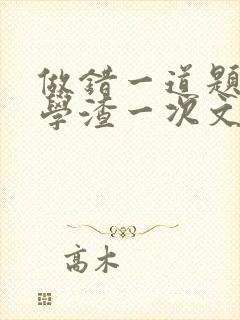 做错一道题
學渣一次文
高木